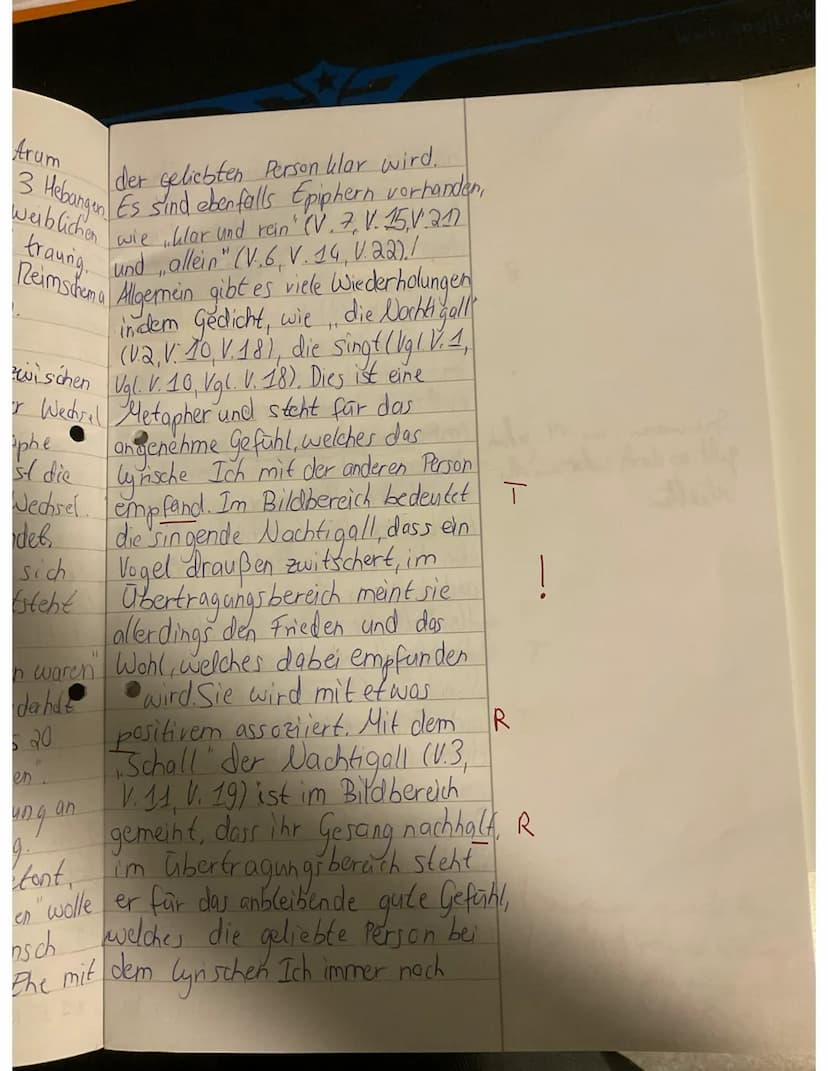 Arum
3 Hebangen
weiblichen
traurig.
Reimschema
zwischen
r Wechsel
phe
st die
Wechsel.
det,
sich
steht
n waren"
dahdt
s 20
en".
ung an
g.
tont,
en" wolle
nsch
Ehe mit
der geliebten Person klar wird.
Es sind ebenfalls Epiphern vorhanden,
wie „klar und rein" (V. 7, V. 15, V. 21)
und „allein" (V. 6, V. 14, V. 22)./
Allgemein gibt es viele Wiederholungen
indem Gedicht, wie „die Nachtigall"
(V2, V. 10, V. 18), die singt (Vgl. V. 1,
Vgl. V. 10, Vgl. V. 18). Dies ist eine
Metapher und steht für das
angenehme Gefühl, welches das
lyrische Ich mit der anderen Person
empfand. Im Bildbereich bedeutet
T
die singende Nachtigall, dass ein
Vogel draußen zwitschert, im
!
Übertragungsbereich meint sie
allerdings den Frieden und das
Wohl, welches dabei empfunden
wird. Sie wird mit etwas
positivem assoziiert. Mit dem
R
„Schall" der Nachtigall (V. 3,
V. 11, V. 19) ist im Bildbereich
gemeint, dass ihr Gesang nachhalt,
R
im Übertragungsbereich steht
er für das anbleibende gute Gefühl,
welches die geliebte Person bei
dem lyrischen Ich immer noch